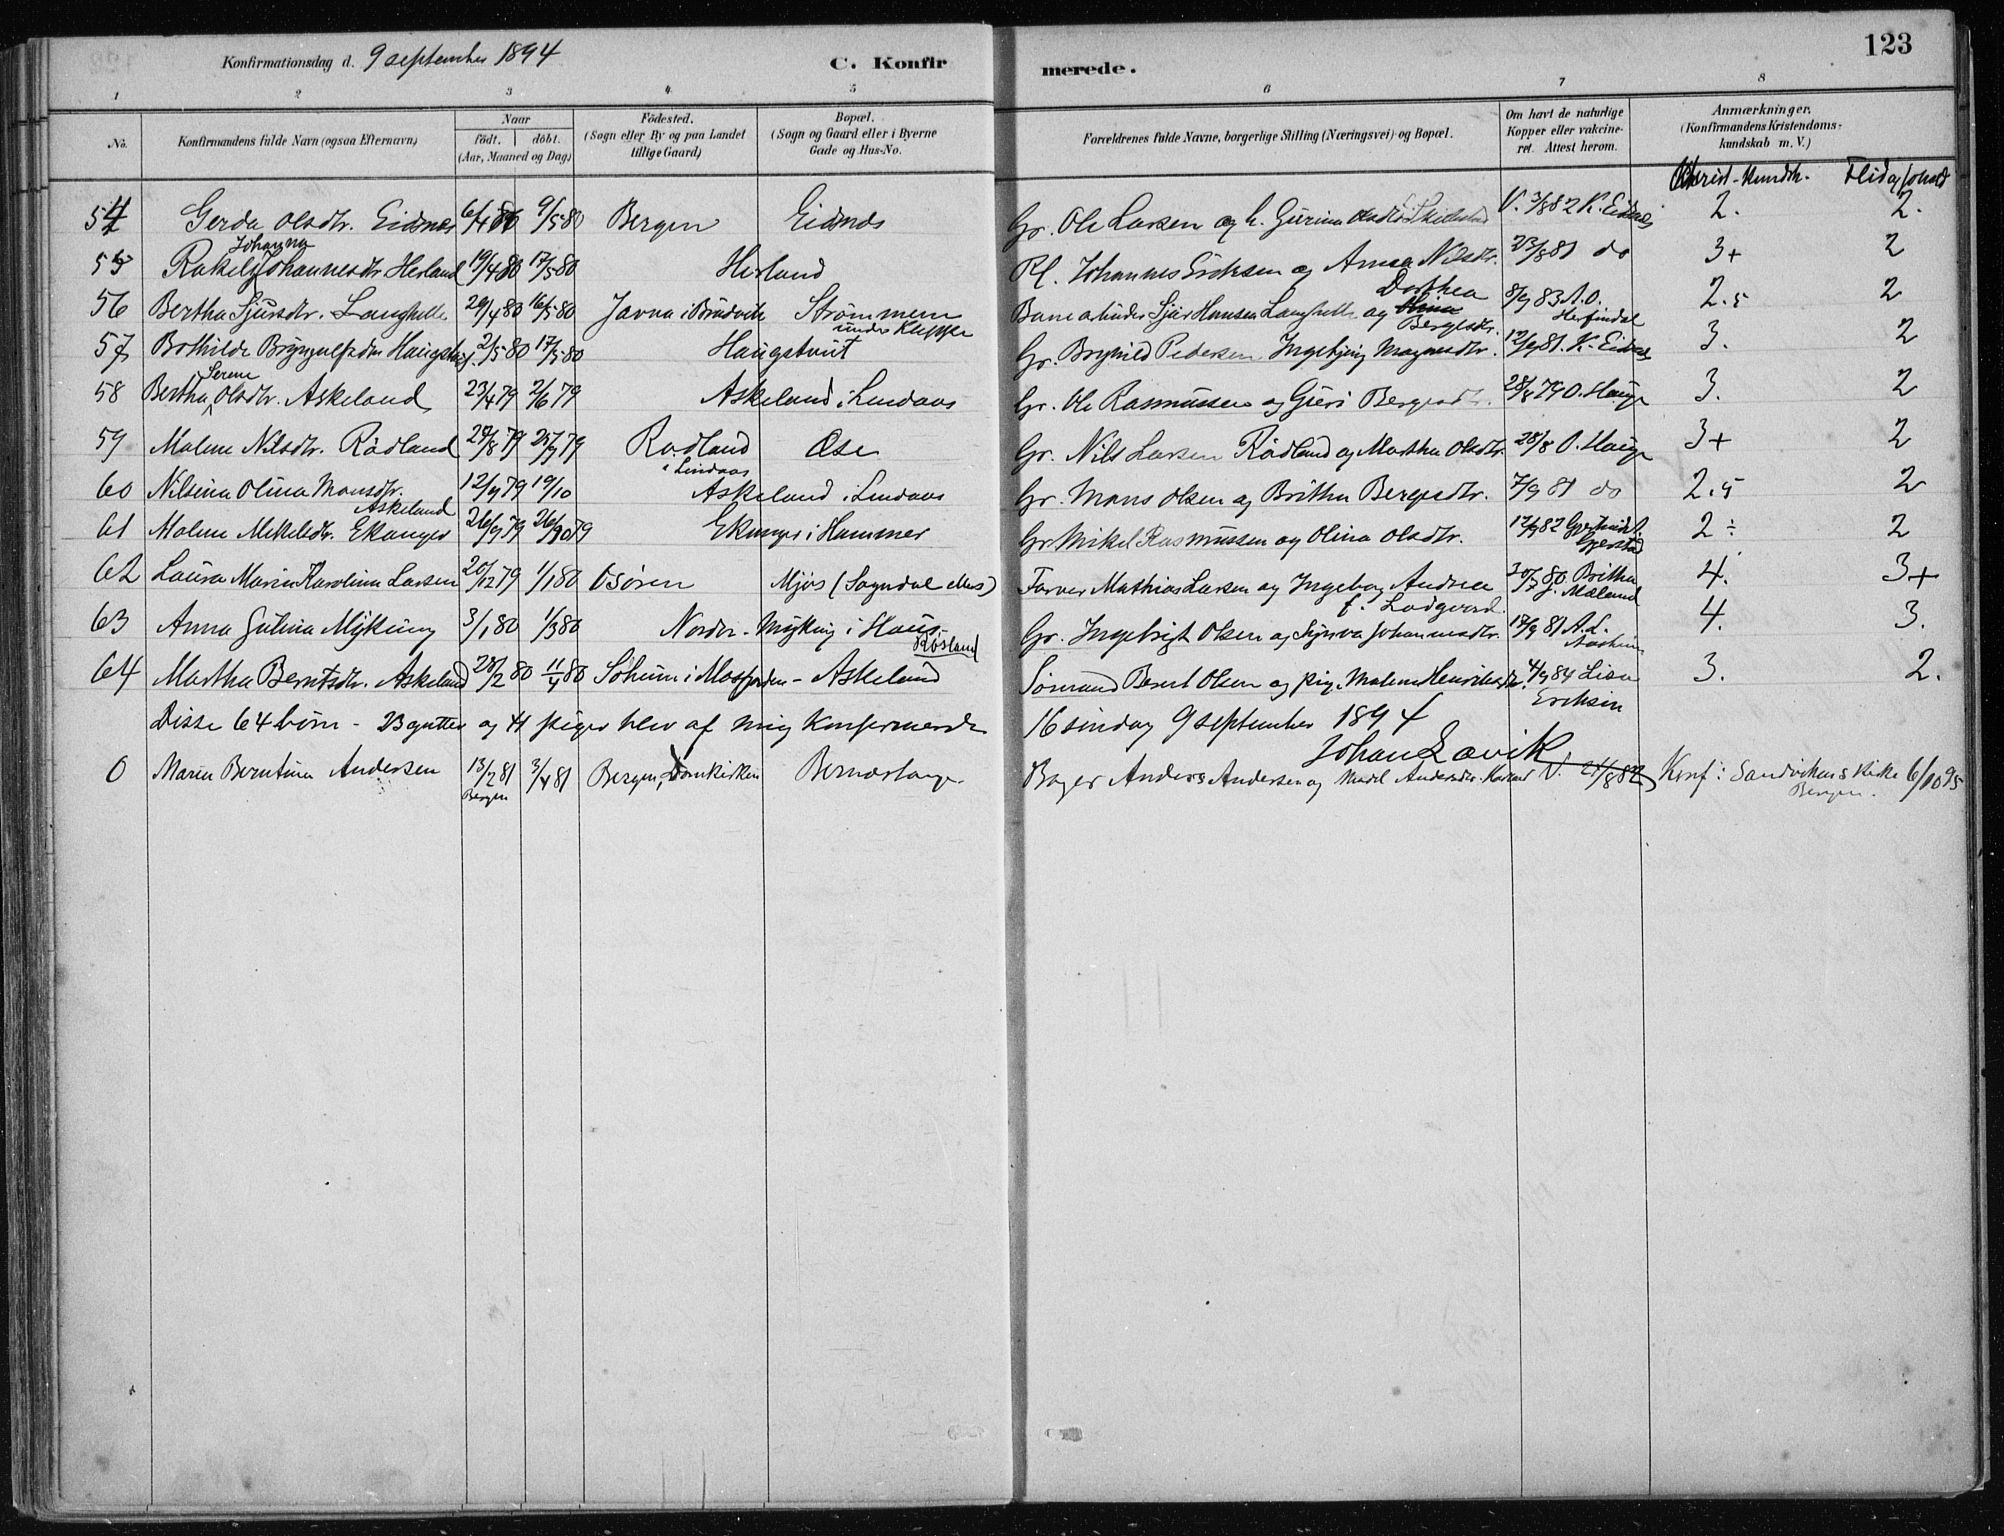 Konfirmationsdag d. 9 september 1894
C. Konfirmerede.
123
1 2 3 4 5 6 7 8
No.
Konfirmandens fulde Navn (ogsaa Efternavn)
Naar
født. døbt.
(Aar, Maaned og Dag)
Fødested.
(Sogn eller By og paa Landet
tillige Gaard)
Bopæl.
(Sogn og Gaard eller i Byerne
Gade og Hus-No.
Forældrenes fulde Navne, borgerlige Stilling (Næringsvei) og Bopæl.
Om havt de naturlige
Kopper eller vakcine-
ret. Attest herom.
Anmærkninger.
(Konfirmandens Kristendoms-
kundskab m. V.)
Christ-kundsk. Flid og forhold
54 Gerda Olsdtr. Eidsnes 6/4 80 9/5 80 Bergen Eidsnes Gr. Ole Larsen og h. Gurina V. 82 K. Eidsnes 2. 2.
55 Rakel Johanna Johannesdtr Herland 19/4 80 17/5 80 Herland Pl. Johannes Ericksen og Anna Nilsdtr. 23/8 81 do 3+ 2
56 Bertha Sjursdtr. Langhelle 29/4 80 16/5 80 Javna i Bruvik Strømmen under Kleppe Banearbeider Sjur Hansen Langhelle og Dorthea Bergesdtr. 8/9 83 A.O. Herfindal 2.5 2
57 Bothilde Bryngulfsdtr Haugstvej. 2/5 80 17/5 80 Haugstveit Gr. Brynild Pedersen Ingebjørg Magnesdtr. 12/9 81. K. Eidsnes 3. 2
58 Bertha Serene Olsdtr. Askeland 23/4 79 2/6 79 Askeland i Lindaas Gr. Ole Rasmussen og Guri Bergesdtr. 28/8 79 O. Hauge 3. 2
59 Malene Nilsdtr. Rødland 79 79 Rødland i Lindaas Øse Gr. Nils Larsen Rødland og Martha Olsdtr. 28/8 O. Hauge 3+ 2
60 Nilsina Olina Monsdtr. Askeland 12/9 79 19/10 Askeland i Lindaas Gr. Mons Olsen og Britha Bergesdtr. 7/9 81 do 2.5 2
61 Malene Mikelsdtr. Ekanger 26/9 79 26/10 79 Ekanger i Hammer Gr Mikel Rasmussen og Olina Olsdtr. 82 Gjerstad 2÷ 2
62 Laura Marie Karoline Larsen 20/12 79 1/1 80 Osøren Mjøs (Sogndal ellers) Farver Mathias Larsen og Ingeborg Andrea f. Lodgaard. 30/7 80. Britha J. Mæland 4. 3+
63 Anna Gulina Mykung 3/1 80 1/3 80 Nordre-Myking i Haus Gr. Ingebrigt Olsen og Synva Johannesdtr. 17/9 81 A.L. 4. 3.
64 Martha Berntsdtr. Askeland 28/2 80 11/4 80 Søheim i Masfjorden - Askeland Røsland Sømand Bernt Olsen og pige Malene Henriksdtr. 4/9 84 Lisa Ericksen 3. 2.
Disse 64 børn - 23 gutter og 41 piger blev af mig konfirmerede 16 søndag 9 september 1894
Johan Løvik
0 Maria Berntine Andersen 13/2 81 Bergen 3/4 81 Bergen, Domkirken Bernestangen Bager Anders Andersen og Andersdtr. V. 21/8 82 Konf: Sandvikens Kirke Bergen. 6/10 95